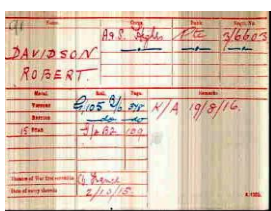 Name. Corps. Rank. Regtl. No.
DAVIDSON A & S. Highrs Pte 3/6603
ROBERT.
Medal. Roll. Page. Remarks.
Victory G/105 B/6 K/A 19/8/16.
British do do
15 Star
Theatre of War first served in France
Date of entry therein 2/10/15.